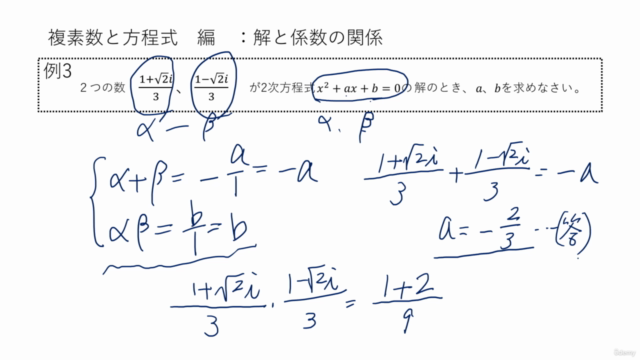 複素数と方程式　編　：解と係数の関係
例3
２つの数 (1+√2i)/3、(1−√2i)/3 が2次方程式x²+ax+b=0の解のとき、a、bを求めなさい。
α − β　α、β
α+β = −a/1 = −a
(1+√2i)/3 + (1−√2i)/3 = −a
αβ = b/1 = b
a = −2/3 …(答)
(1+√2i)/3 · (1−√2i)/3 = (1+2)/9
Udemy